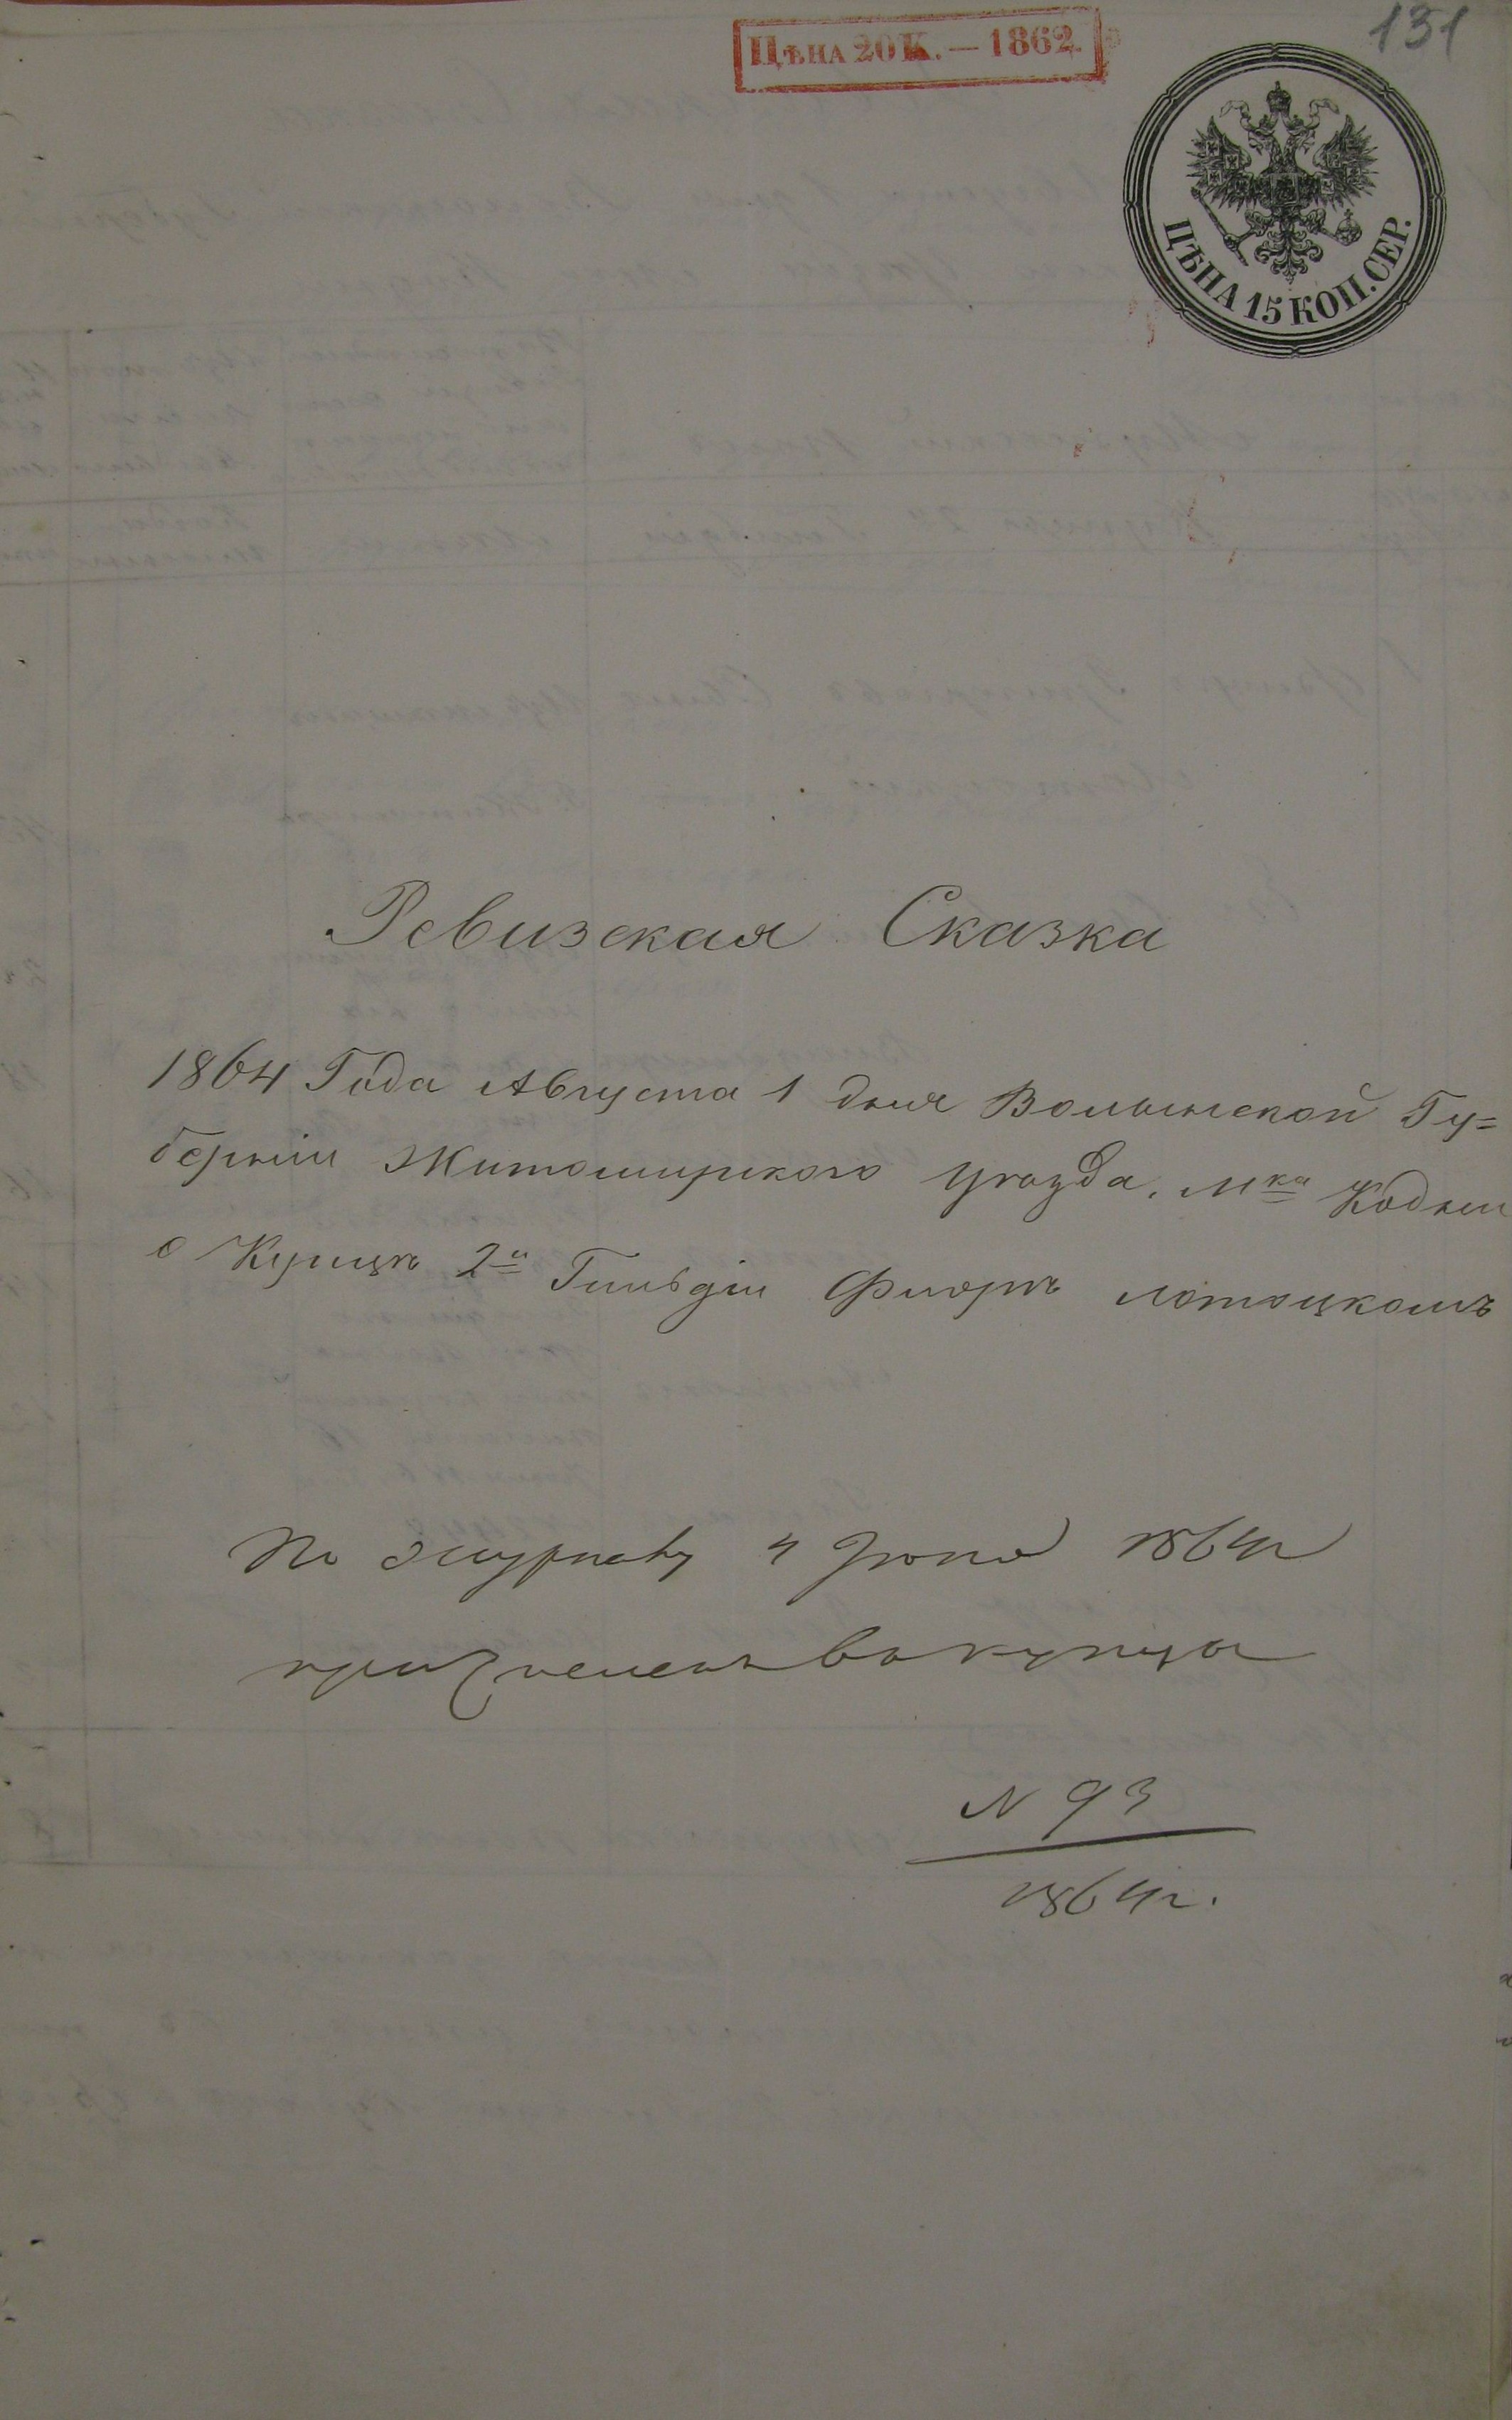 131
Цѣна 20 К. — 1862.
ЦѢНА 15 КОП. СЕР.
Ревизская Сказка
1864 Года Августа 1 дня Волынской Гу=
берніи Житомирского Уѣзда, мка Кодни
о Купцѣ 2й Гильдіи Фиорѣ Лотоцкомъ
По журналу 4 Іюня 1864 г
причисленъ въ купцы
N 93
1864 г.